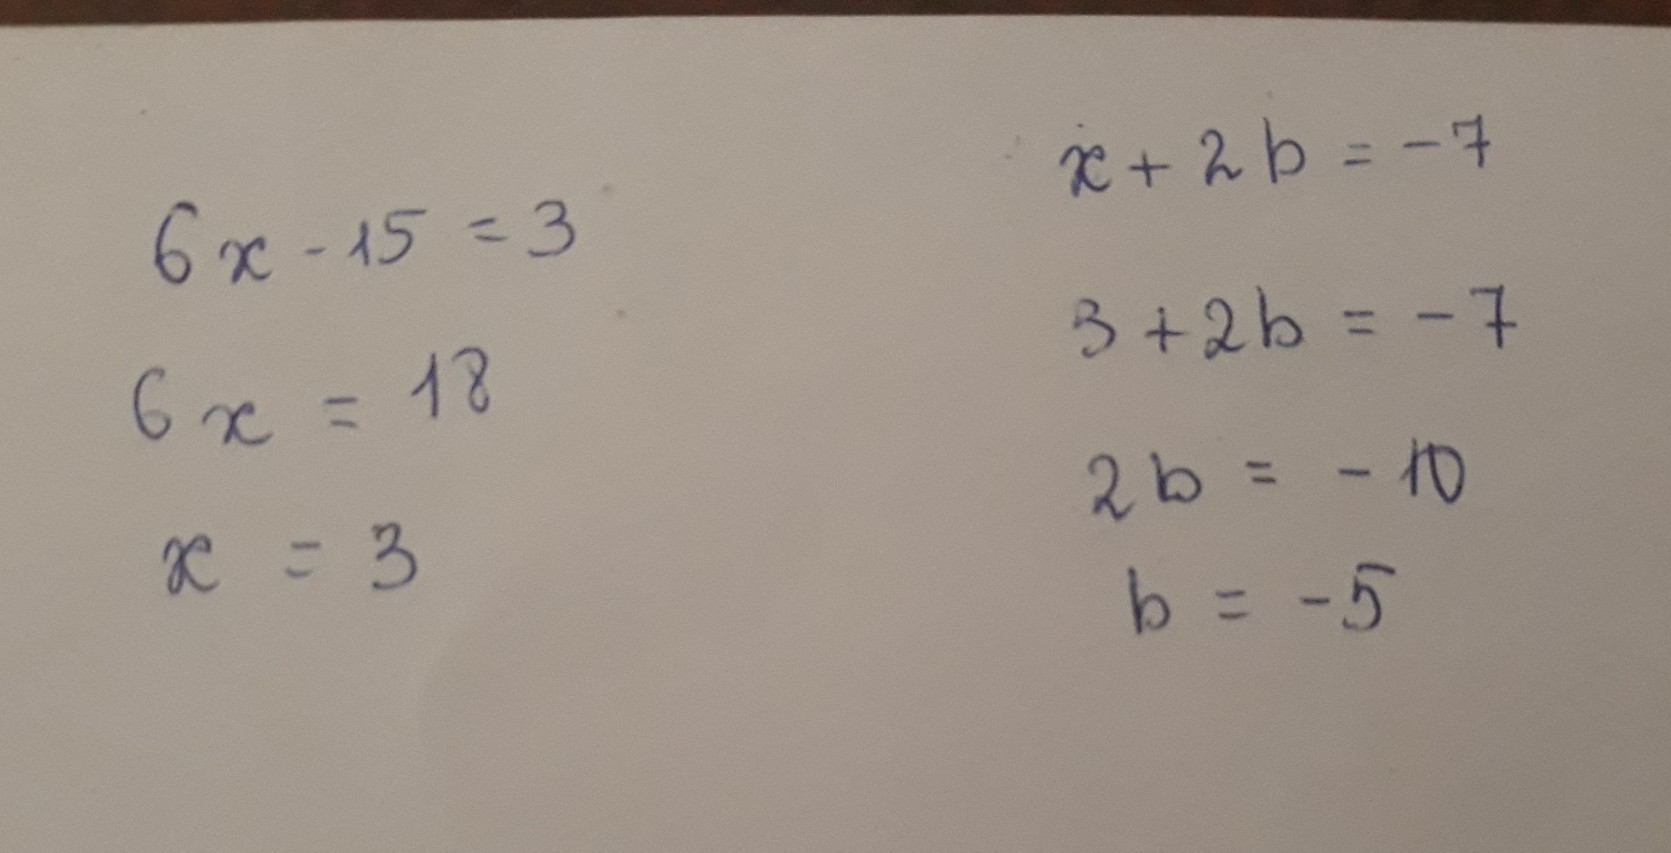 6x - 15 = 3
6x = 18
x = 3
x + 2b = -7
3 + 2b = -7
2b = -10
b = -5